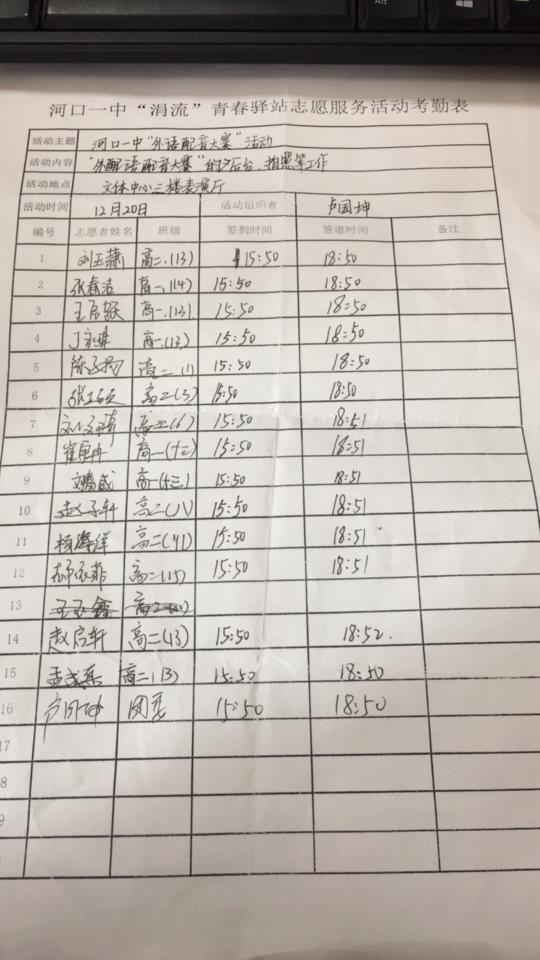 河口一中“涓流”青春驿站志愿服务活动考勤表
活动主题 河口一中“外语配音大赛”活动
活动内容 “外语配音大赛” 后台、拍照等工作
活动地点 文体中心三楼表演厅
活动时间 12月20日 活动组织者 卢国坤
编号 志愿者姓名 班级 签到时间 签退时间 备注
1 刘玉潇 高二.(13) 15:50 18:50
2 张春洁 高一.(14) 15:50 18:50
3 王启跃 高一.(13) 15:50 18:50
4 高一.(13) 15:50 18:50
5 高二 (1) 15:50 18:50
6 高二(3) 15:50 18:50
7 高二(6) 15:50 18:51
8 高一(十三) 15:50 18:51
9 高一(十三) 15:50 18:51
10 赵子轩 高二 15:50 18:51
11 杨海洋 高二 15:50 18:51
12 高二(15) 15:50 18:51
13
14 赵启轩 高二(13) 15:50 18:52.
15 高二(13) 15:50 18:50
16 卢国坤 团委 15:50 18:50
17
8
9